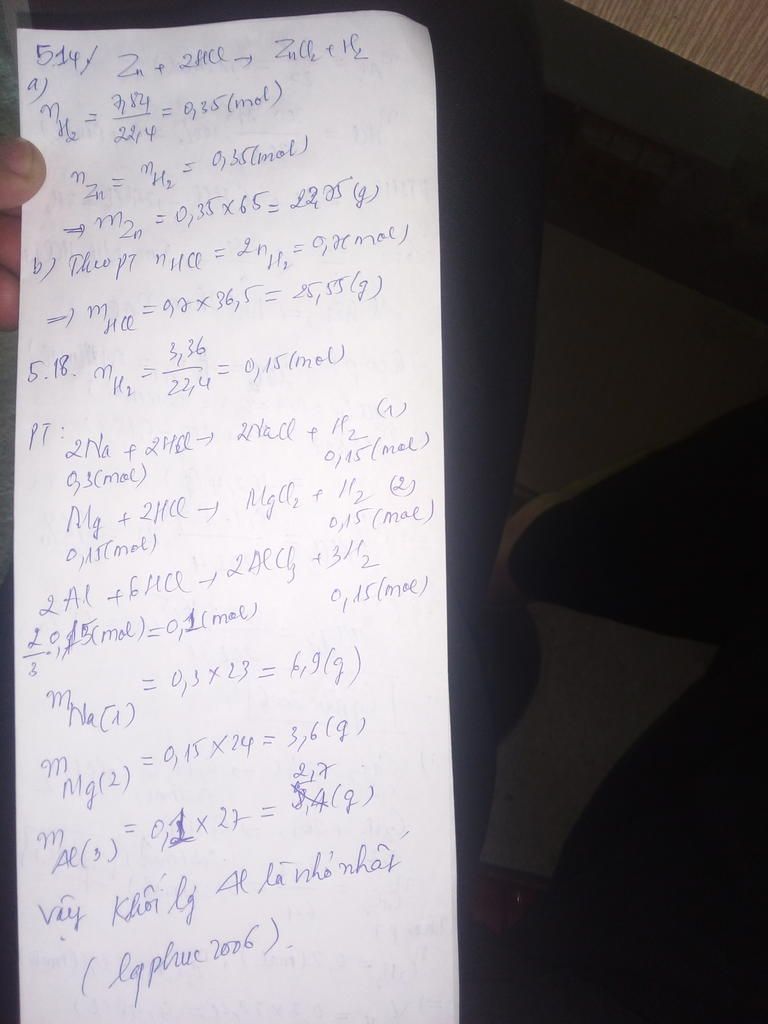 5.14/ Zn + 2HCl → ZnCl2 + H2
a)
nH2 = 7,84/22,4 = 0,35 (mol)
nZn = nH2 = 0,35 (mol)
=> mZn = 0,35 x 65 = 22,75 (g)
b) Theo PT nHCl = 2nH2 = 0,7 (mol)
=> mHCl = 0,7 x 36,5 = 25,55 (g)
5.18. nH2 = 3,36/22,4 = 0,15 (mol)
PT: 2Na + 2HCl → 2NaCl + H2 (1)
0,3 (mol) 0,15 (mol)
Mg + 2HCl → MgCl2 + H2 (2)
0,15 (mol) 0,15 (mol)
2Al + 6HCl → 2AlCl3 + 3H2
2/3 . 0,15 (mol) = 0,1 (mol) 0,15 (mol)
mNa(1) = 0,3 x 23 = 6,9 (g)
mMg(2) = 0,15 x 24 = 3,6 (g)
mAl(3) = 0,1 x 27 = 2,7 (g)
Vậy khối lg Al là nhỏ nhất,
(lqphuc2006).